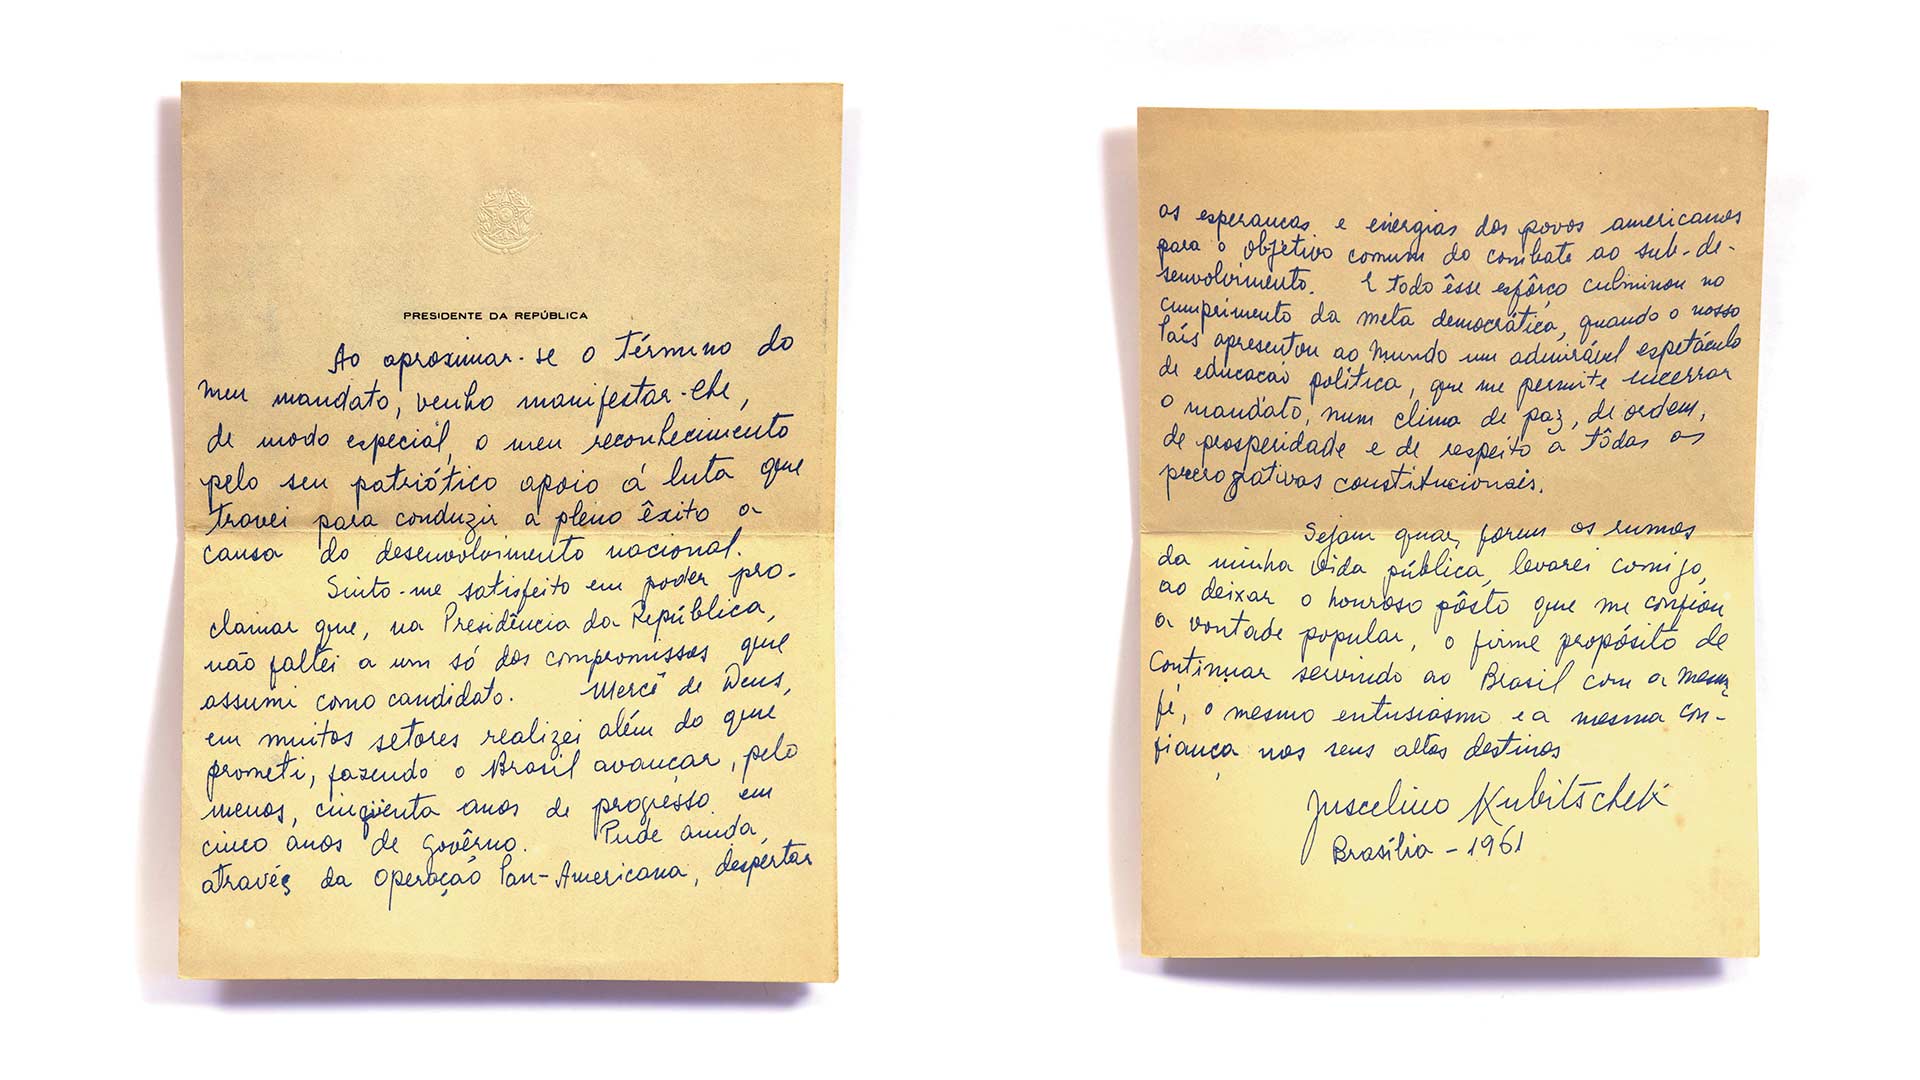 PRESIDENTE DA REPÚBLICA
Ao aproximar-se o término do
meu mandato, venho manifestar-lhe,
de modo especial, o meu reconhecimento
pelo seu patriótico apoio á luta que
travei para conduzir a pleno êxito a
causa do desenvolvimento nacional.
Sinto-me satisfeito em poder pro-
clamar que, na Presidência da República,
não faltei a um só dos compromissos que
assumi como candidato. Mercê de Deus,
em muitos setores realizei além do que
prometi, fazendo o Brasil avançar, pelo
menos, cinqüenta anos de progresso em
cinco anos de Govêrno. Pude ainda,
através da Operação Pan-Americana, despertar
as esperanças e energias dos povos americanos
para o objetivo comum do combate ao sub-de-
senvolvimento. E todo êsse esfôrço culminou no
cumprimento da meta democrática, quando o nosso
País apresentou ao mundo um admirável espetáculo
de educação política, que me permite encerrar
o mandato, num clima de paz, de ordem,
de prosperidade e de respeito a tôdas as
prerogativas constitucionais.
Sejam quais forem os rumos
da minha vida pública, levarei comigo,
ao deixar o honroso pôsto que me confiou
a vontade popular, o firme propósito de
continuar servindo ao Brasil com a mesma
fé, o mesmo entusiasmo e a mesma con-
fiança nos seus altos destinos
Juscelino Kubitschek
Brasília - 1961